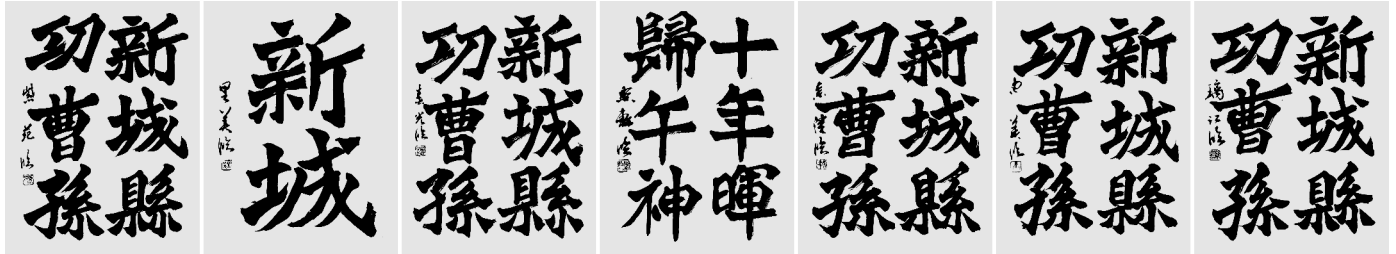 新城縣
功曹孫
紫苑臨
新城
里美臨
新城縣
功曹孫
十年暉
歸午神
新城縣
功曹孫
新城縣
功曹孫
新城縣
功曹孫
璃江臨